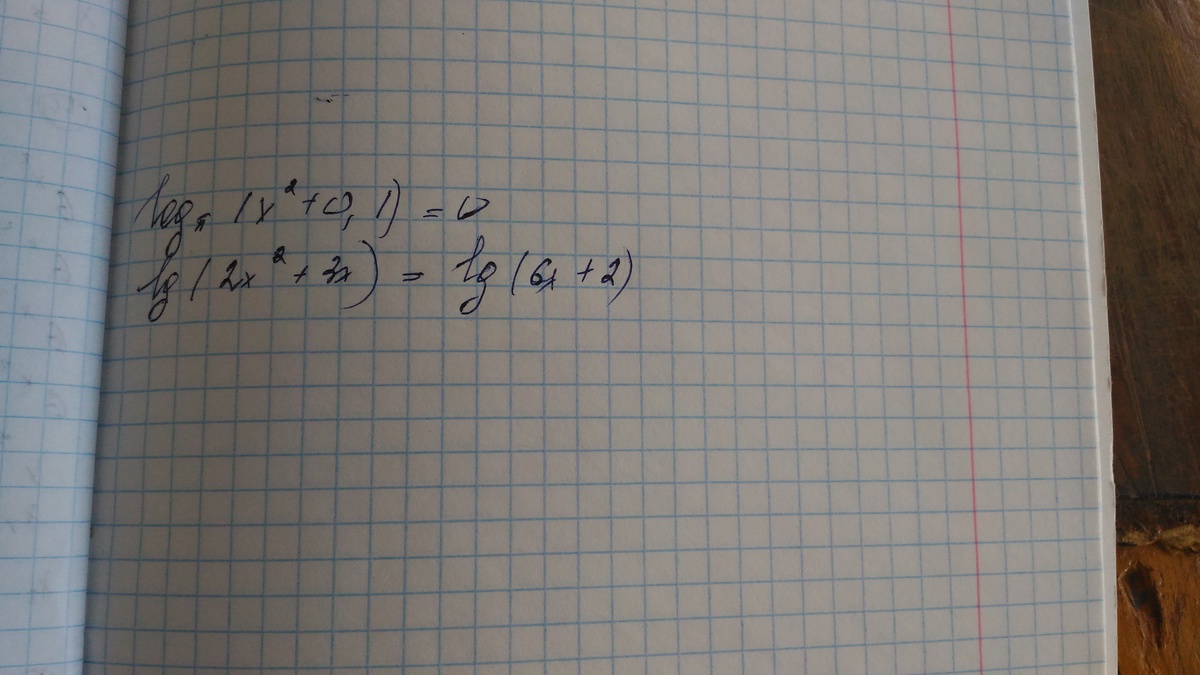 log_π (x² + 0,1) = 0
lg (2x² + 3x) = lg (6x + 2)